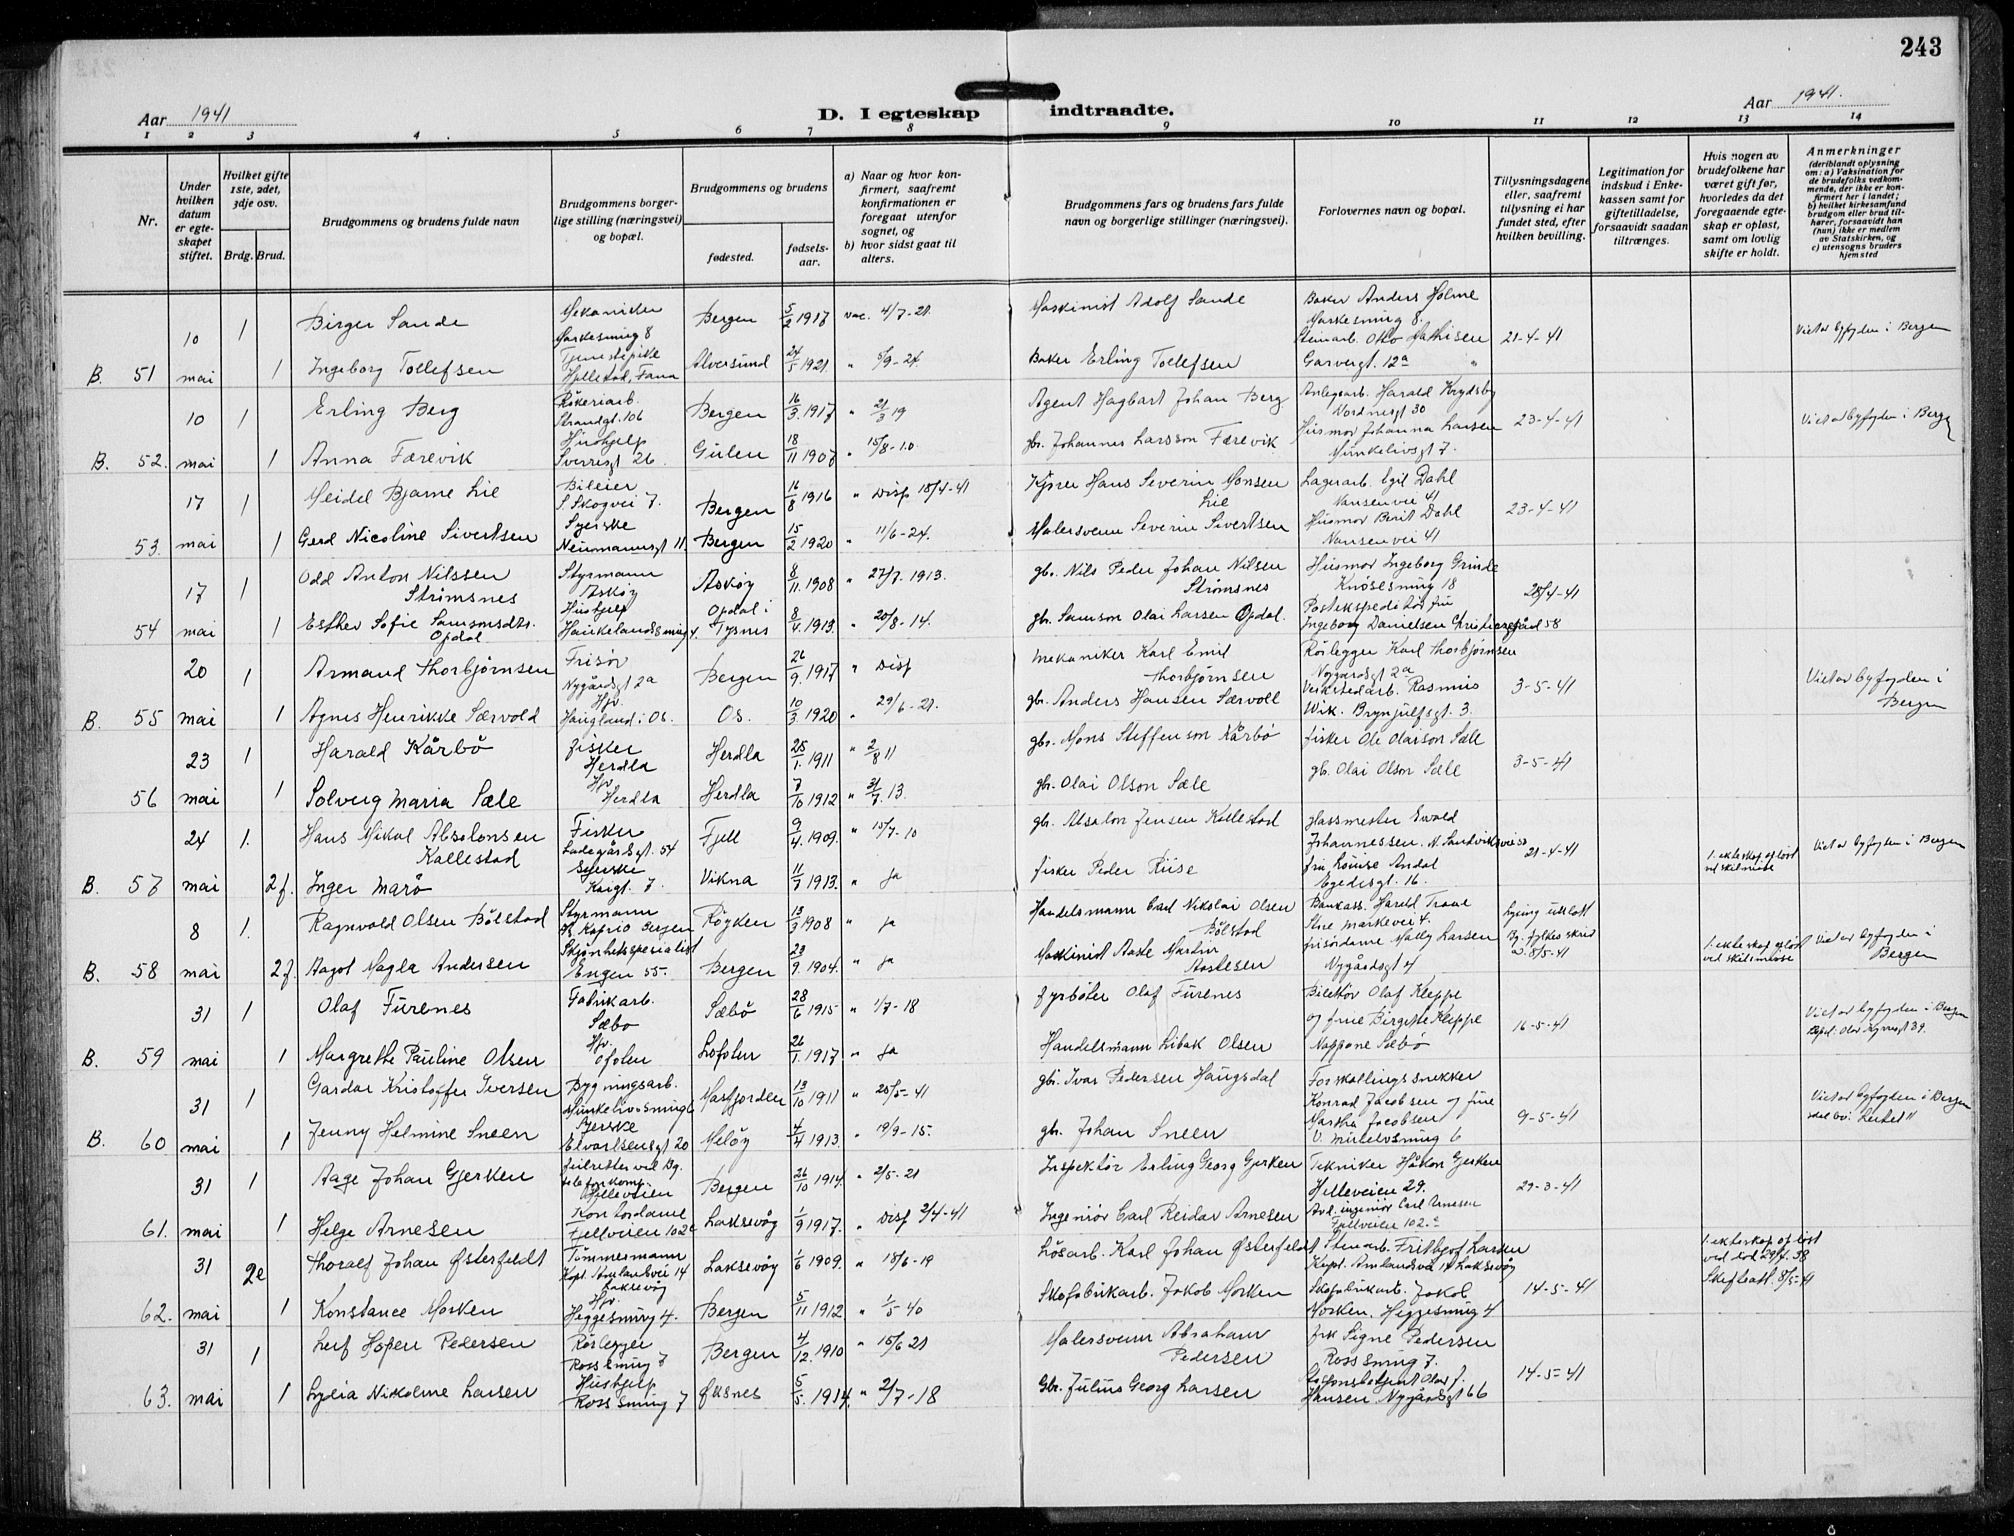 243
Aar 1941
D. Iegteskap indtraadte.
Aar 1941.
1 2 3 4 5 6 7 8 9 10 11 12 13 14
Nr.
Under hvilken datum er egteskapet stiftet.
Hvilket gifte 1ste, 2det, 3dje osv.
Brdg. Brud.
Brudgommens og brudens fulde navn
Brudgommens borgerlige stilling (næringsvei) og bopæl.
Brudgommens og brudens
fødested.
fødselsaar.
a) Naar og hvor konfirmert, saafremt konfirmationen er foregaat utenfor sognet, og
b) hvor sidst gaat til alters.
Brudgommens fars og brudens fars fulde navn og borgerlige stillinger (næringsvei).
Forlovernes navn og bopæl.
Tillysningsdagene eller, saafremt tillysning ei har fundet sted, efter hvilken bevilling.
Legitimation for indskud i Enkekassen samt for giftetilladelse, forsaavidt saadan tiltrænges.
Hvis nogen av brudefolkene har været gift før, hvorledes da det foregaaende egteskap er opløst, samt om lovlig skifte er holdt.
Anmerkninger
(deriblandt oplysning om: a) Vaksination for de brudefolks vedkommende, der ikke er konfirmert her i landet; b) hvilket kirkesamfund brudgom eller brud tilhører, forsaavidt han (hun) ikke er medlem av Statskirken, og c) utensogns bruders hjemsted
10 1 Birger Sande Mekaniker Markesmug 8 Bergen 5/2 1917 vac. 4/7-21 Maskinist Adolf Sande Baker Anders Holme Markesmug 8.
Viet av byfogden i Bergen
B. 51 mai 1 Ingeborg Tollefsen Tjenestepike Hjellestad, Fana Alversund 24/5 1921. " 5/9-24 Baker Erling Tollefsen Stenarb. Otto Mathisen Garvergt. 12a 21-4-41
10 1 Erling Berg Røkeriarb. Strandgt. 106 Bergen 16/3 1917 " 21/3 19 Agent Hagbart Johan Berg Anlegsarb. Harald Krydsby Nordnesgt 30
23-4-41 Viet av byfogden i Bergen
B. 52. mai 1 Anna Færevik Hushjelp Sverresgt 26. Gulen 18/11 1907 " 15/8-10 gbr. Johannes Larsson Færevik Husmor Johanna Larsen Munkelivsgt 7.
17 1 Meidel Bjarne Lie Bileier S. Skogvei 7. Bergen 16/8 1916 " Disp 18/4-41 Kjører Hans Severin Monsen Lie Lagerarb. Egil Dahl Nansenvei 41
23-4-41
53. mai 1 Gerd Nicoline Sivertsen Syerske Neumannsgt 11. Bergen 15/2 1920 " 11/6-24. Malersvenn Severin Sivertsen Husmor Berit Dahl Nansenvei 41
17 1 Odd Anton Nilssen Strømsnes Styrmann Askøy Askøy 8/11 1908 " 27/7. 1913. gbr. Nils Peder Johan Nilsen Strømsnes Husmor Ingeborg Grinde Knøsesmug 18
28/4-41
54 mai 1 Esther Sofie Samsonsdtr. Opdal Hushjelp Haukelandsmug 4 Opdal i Tysnes 8/4 1913. " 20/8-14. gbr. Samson Olai Larsen Opdal. Postekspeditør fru Ingeborg Danielsen Christiesgård 58
20 1 Armand Thorbjørnsen Frisør Nygårdsgt 2a Bergen 26/9 1917 " Disp Mekaniker Karl Emil Thorbjørnsen Rørlegger Karl Thorbjørnsen Nygårdsgt 2a
3-5-41 Viet av byfogden i Bergen
B. 55 mai 1 Agnes Henrikke Særvold Hjv. Haugland i Os. Os. 10/3 1920 " 29/6-21. gbr. Anders Hansen Særvoll Verkstedarb. Rasmus Wik. Brynjulfsgt. 3.
23 1 Harald Kårbø fisker Herdla Herdla 25/1. 1911 " 2/8 11 gbr. Mons Steffenson Kårbø fisker Ole Olaison Sæle
3-5-41
56 mai 1 Solveig Maria Sæle Hjv Herdla Herdla 7/10 1912 " 31/7. 13. gbr. Olai Olson Sæle gbr. Olai Olson Sæle
24 1. Hans Mikal Absalonsen Kallestad Fisker Ladegårdsgt. 54 Fjell 9/4. 1909. " 15/7-10 gbr. Absalon Jensen Kallestad glassmester Ewald Johannessen. N. Sandviksvei
21-4-41 1. ekteskap opløst ved skilsmisse Viet av byfogden i Bergen
B. 57 mai 2f. Inger Marø Syerske Kaigt. 7. Vikna 11/7 1913. " ja fisker Peder Riise fru Louise Andal Egedesgt. 16.
8 1. Ragnvald Olsen Bølstad Styrmann Bergen Røyken 13/3 1908 " ja Handelsmann Carl Nikolai Olsen Bølstad Bankass. Harald Traae Stne markevei 4.
Lysing utelatt By. fylkes skriv a. 8/5-41 1. ekteskap opløst ved skilsmisse Viet av byfogden i Bergen
B. 58 mai 2f. Aagot Magla Andersen Skjønhetsspesialist Engen 55. Bergen 23/9. 1904. " ja Maskinist Aasle Martin Aaslesen frisørdame Mally Larsen Nygårdsgt 4
31 1 Olaf Furenes Fabrikarb. Sæbø Sæbø 28/6 1915 " 1/7-18 fyrbøter Olaf Furenes Bilektør Olaf Kleppe
16-5-41 Viet av byfogden i Bergen
B. 59 mai 1 Margrethe Pauline Olsen Hjv. Ofoten Lofoten 26/1. 1917. " ja Handelsmann Libak Olsen og frue Birgitte Kleppe Sæbø
31 1 Gardar Kristoffer Iversen Bygningsarb. Munkelivsmug 6 Masfjorden 13/10 1911 " 25/5-41 gbr. Ivar Pedersen Haugsdal Forskallingssnekker Konrad Jacobsen og frue
9-5-41 Viet av byfogden i Bergen
B. 60 mai 1 Jenny Helmine Sneen Syerske Edvardsensgt 20 Meløy 4/4 1913. " 19/9-15. gbr. Johan Sneen Martha Jacobsen
31 1 Aage Johan Gjerken feilretter ved Bg. telefonkomp. Helleveien Bergen 26/10 1914 " 2/5-21 Inspektør Erling Georg Gjerken Tekniker Håkon Gjerken Helleveien 29.
29-3-41
61. mai 1 Helge Arnesen Kontordame Fjellveien 102a Laksevåg 1/9 1917. " Disp 2/4-41 Ingeniør Carl Reidar Arnesen Avd. ingeniør Carl Arnesen Fjellveien 102.a
31 2e Thoralf Johan Østerfeldt Tømmermann Kapt. Amlandsvei 14 Laksevåg Laksevåg 1/6 1909. " 18/6-19 Løsarb. Karl Johan Østerfeldt Stenarb. Frithjof Larsen Kapt. Amlandsvei 14 Laksevåg
14-5-41 1. ekteskap opløst ved død 29/4. 38 Skifteatt. 8/5-41
62. mai 1 Konstance Morken Hjv. Heggesmug 4. Bergen 5/11 1912 " 1/5-40 Skofabrikarb. Jakob Morken Skofabrikarb. Jakob Morken. Heggesmug 4
31 1 Leif Hopen Pedersen Rørlegger Rossesmug 7 Bergen 4/12 1910 " 15/6 21 Malersvenn Abraham Pedersen frk Signe Pedersen Rossesmug 7.
14-5-41
63. mai 1 Lydia Nikoline Larsen Hushjelp Rossesmug 7 Øksnes 5/5. 1914. " 2/7-18 Gbr. Julius Georg Larsen Hansen. Nygårdsgt 66